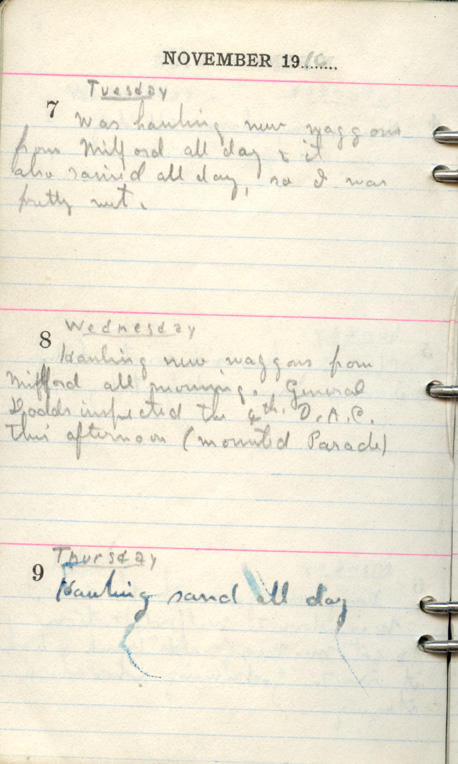 NOVEMBER 1916
Tuesday
7 Was hauling new waggons
from Milford all day & it
also rained all day, so I was
pretty wet.
Wednesday
8 Hauling new waggons from
Milford all morning. General
inspected the 4th. D.A.C.
this afternoon (mounted Parade)
Thursday
9 Hauling sand all day